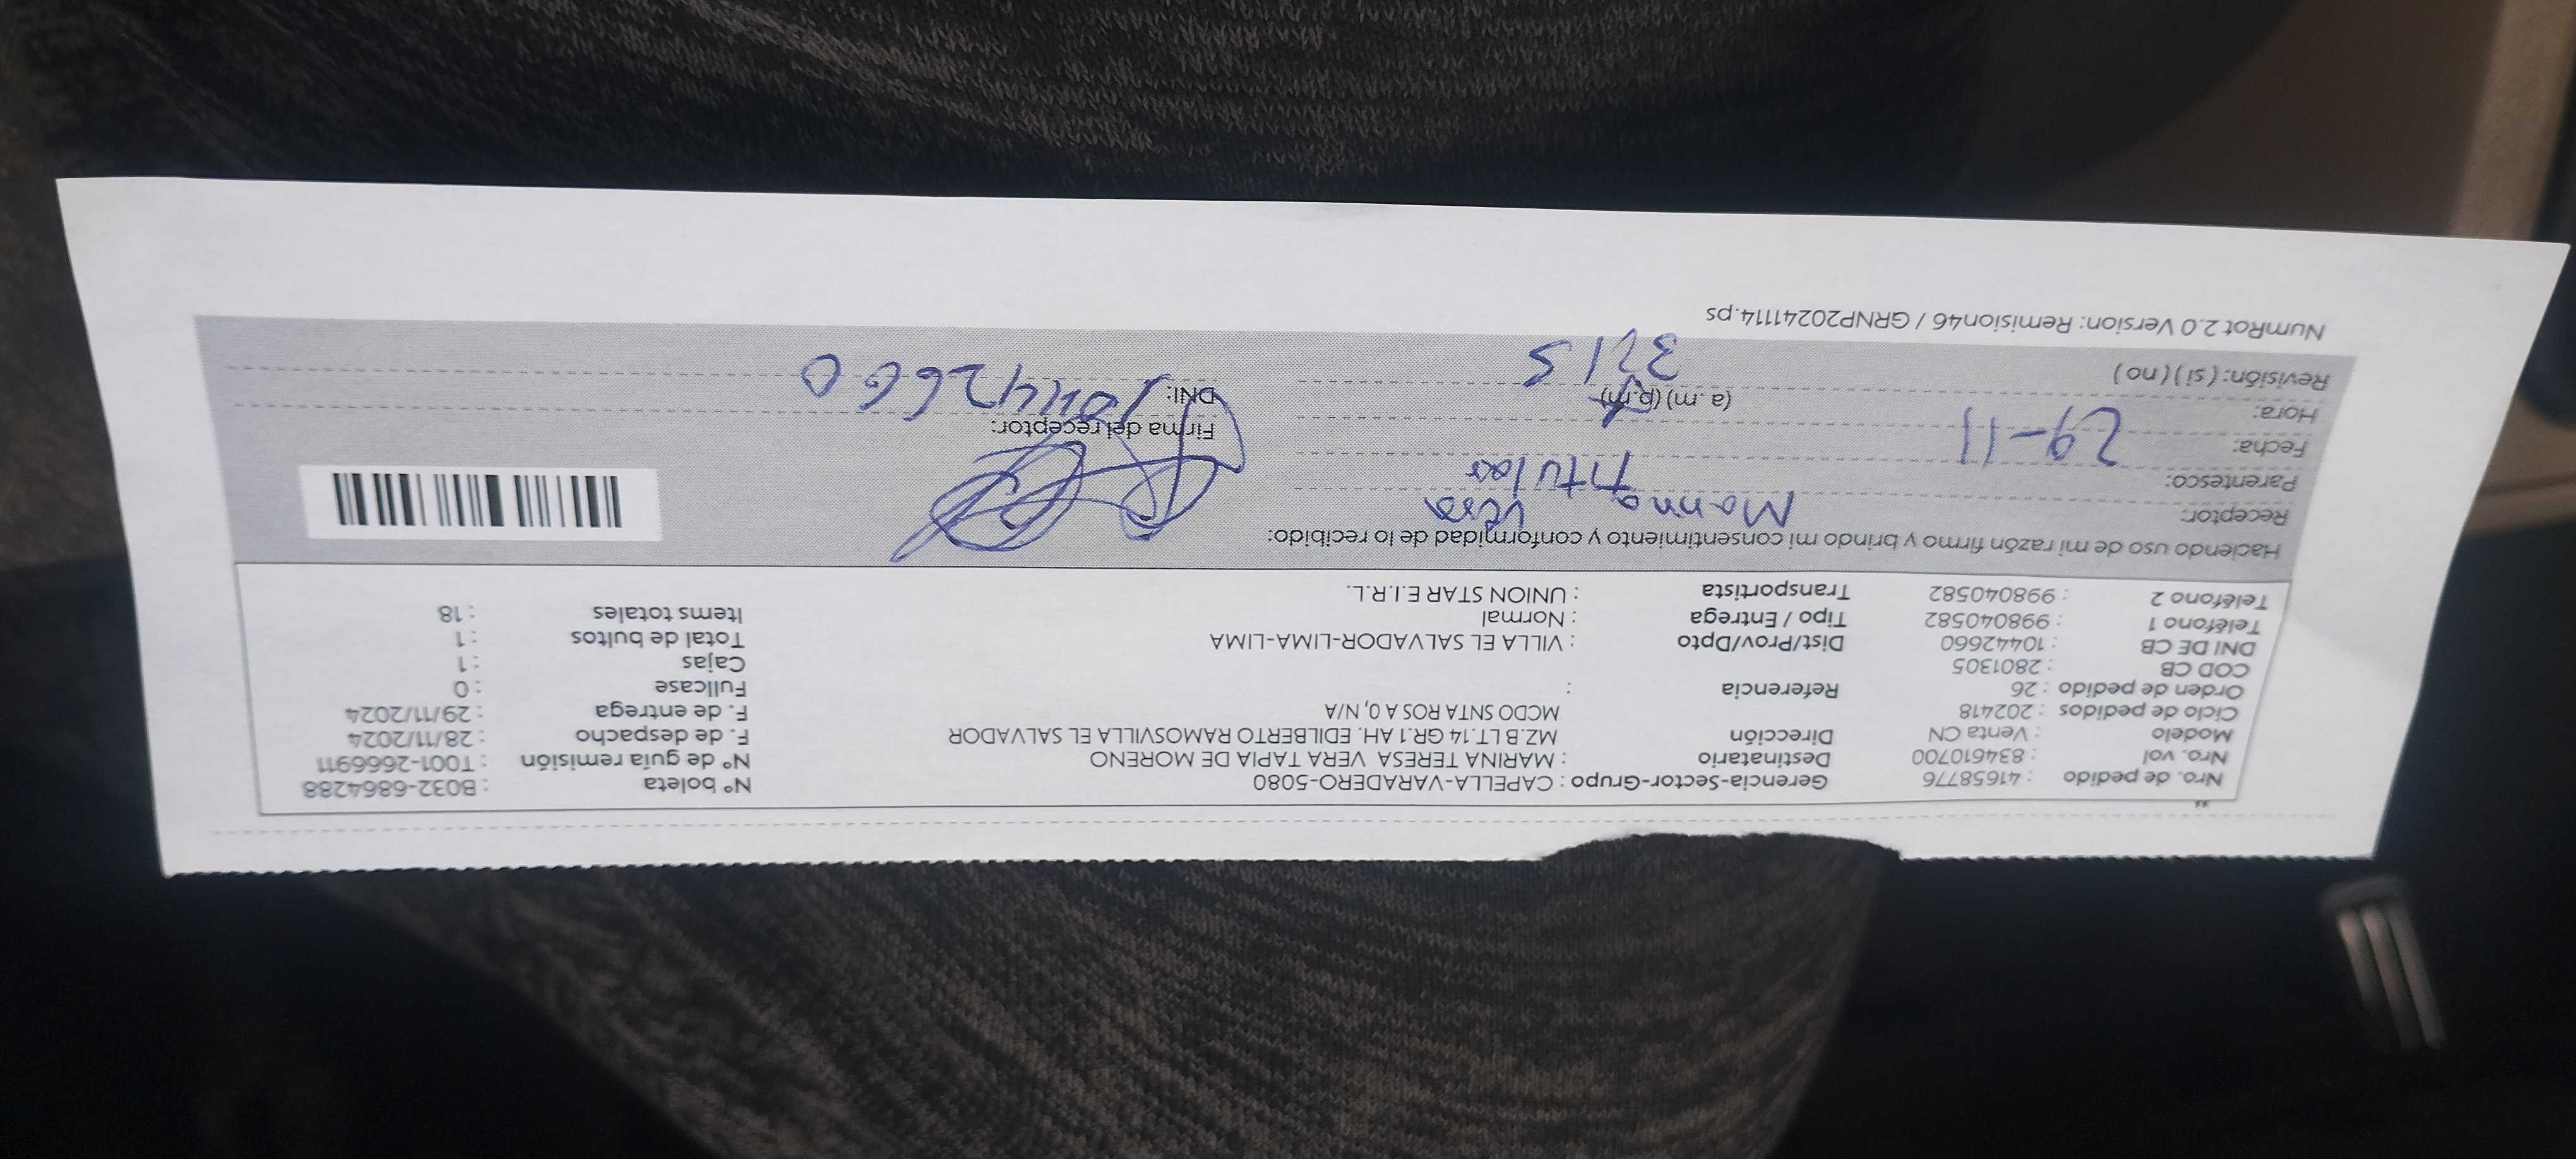 Nro. de pedido : 41658776 Gerencia-Sector-Grupo : CAPELLA-VARADERO-5080 Nº boleta : B032-6864288
Nro. vol : 834610700 Destinatario : MARINA TERESA VERA TAPIA DE MORENO Nº de guía remisión : T001-2666911
Modelo : Venta CN Dirección MZ.B LT.14 GR.1 AH. EDILBERTO RAMOSVILLA EL SALVADOR F. de despacho : 28/11/2024
Ciclo de pedidos : 202418 MCDO SNTA ROS A 0, N/A F. de entrega : 29/11/2024
Orden de pedido : 26 Referencia : Fullcase : 0
COD CB : 2801305 Cajas : 1
DNI DE CB : 10442660 Dist/Prov/Dpto : VILLA EL SALVADOR-LIMA-LIMA Total de bultos : 1
Teléfono 1 : 998040582 Tipo / Entrega : Normal Items totales : 18
Teléfono 2 : 998040582 Transportista : UNION STAR E.I.R.L.
Haciendo uso de mi razón firmo y brindo mi consentimiento y conformidad de lo recibido:
Receptor: Marina Vera
Parentesco: Titular
Fecha: 29-11 Firma del receptor:
Hora: (a. m) (p. m) DNI: 10442660
Revisión: ( si ) ( no )
NumRot 2.0 Version: Remision46 / GRNP20241114.ps